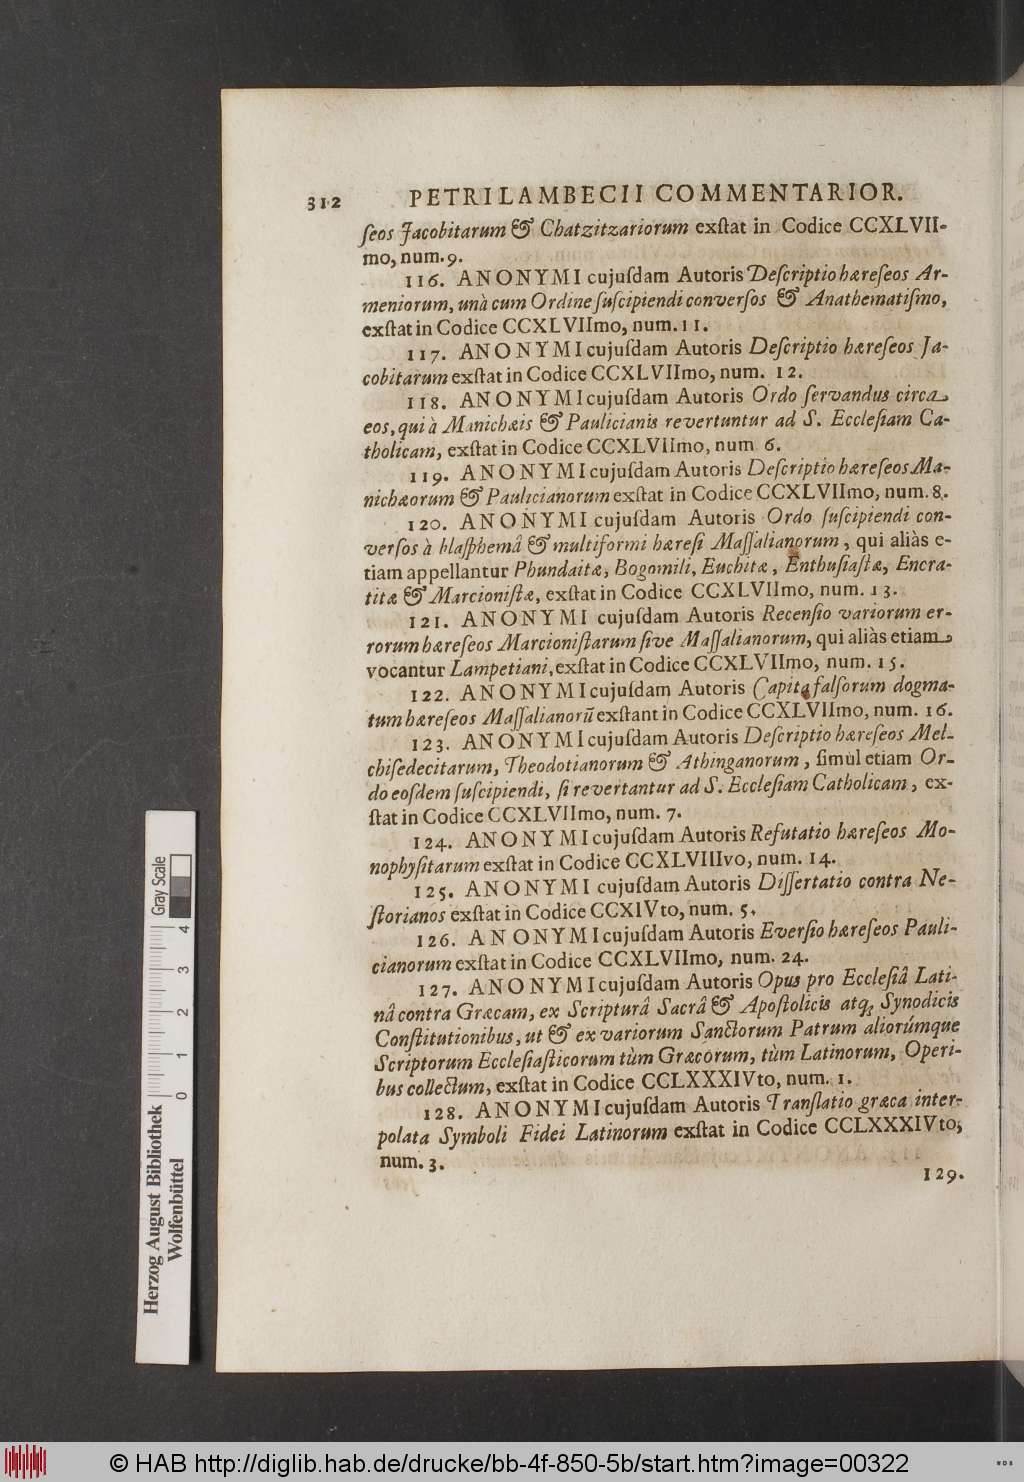 312 PETRI LAMBECII COMMENTARIOR.
ſeos Jacobitarum & Chatzitzariorum exſtat in Codice CCXLVII-
mo, num. 9.
116. ANONYMI cujuſdam Autoris Deſcriptio hæreſeos Ar-
meniorum, unà cum Ordine ſuſcipiendi converſos & Anathematiſmo,
exſtat in Codice CCXLVIImo, num. 11.
117. ANONYMI cujuſdam Autoris Deſcriptio hæreſeos Ja-
cobitarum exſtat in Codice CCXLVIImo, num. 12.
118. ANONYMI cujuſdam Autoris Ordo ſervandus circa
eos, qui à Manichæis & Paulicianis revertuntur ad S. Eccleſiam Ca-
tholicam, exſtat in Codice CCXLVIImo, num 6.
119. ANONYMI cujuſdam Autoris Deſcriptio hæreſeos Ma-
nichæorum & Paulicianorum exſtat in Codice CCXLVIImo, num. 8.
120. ANONYMI cujuſdam Autoris Ordo ſuſcipiendi con-
verſos à blaſphemâ & multiformi hæreſi Maſſalianorum, qui aliàs e-
tiam appellantur Phundaitæ, Bogomili, Euchitæ, Enthuſiaſtæ, Encra-
titæ & Marcioniſtæ, exſtat in Codice CCXLVIImo, num. 13.
121. ANONYMI cujuſdam Autoris Recenſio variorum er-
rorum hæreſeos Marcioniſtarum ſive Maſſalianorum, qui aliàs etiam
vocantur Lampetiani, exſtat in Codice CCXLVIImo, num. 15.
122. ANONYMI cujuſdam Autoris Capita falſorum dogma-
tum hæreſeos Maſſalianorū exſtant in Codice CCXLVIImo, num. 16.
123. ANONYMI cujuſdam Autoris Deſcriptio hæreſeos Mel-
chiſedecitarum, Theodotianorum & Athinganorum, ſimul etiam Or-
do eoſdem ſuſcipiendi, ſi revertantur ad S. Eccleſiam Catholicam, ex-
ſtat in Codice CCXLVIImo, num. 7.
124. ANONYMI cujuſdam Autoris Refutatio hæreſeos Mo-
nophyſitarum exſtat in Codice CCXLVIIIvo, num. 14.
125. ANONYMI cujuſdam Autoris Diſſertatio contra Ne-
ſtorianos exſtat in Codice CCXIVto, num. 5.
126. ANONYMI cujuſdam Autoris Everſio hæreſeos Pauli-
cianorum exſtat in Codice CCXLVIImo, num. 24.
127. ANONYMI cujuſdam Autoris Opus pro Eccleſiâ Lati-
nâ contra Græcam, ex Scripturâ Sacrâ & Apoſtolicis atq; Synodicis
Conſtitutionibus, ut & ex variorum Sanctorum Patrum aliorúmque
Scriptorum Eccleſiaſticorum tùm Græcorum, tùm Latinorum, Operi-
bus collectum, exſtat in Codice CCLXXXIVto, num. 1.
128. ANONYMI cujuſdam Autoris Tranſlatio græca inter-
polata Symboli Fidei Latinorum exſtat in Codice CCLXXXIVto,
num. 3.
129.
Herzog August Bibliothek
Wolfenbüttel
0 1 2 3 4
Gray Scale
© HAB http://diglib.hab.de/drucke/bb-4f-850-5b/start.htm?image=00322